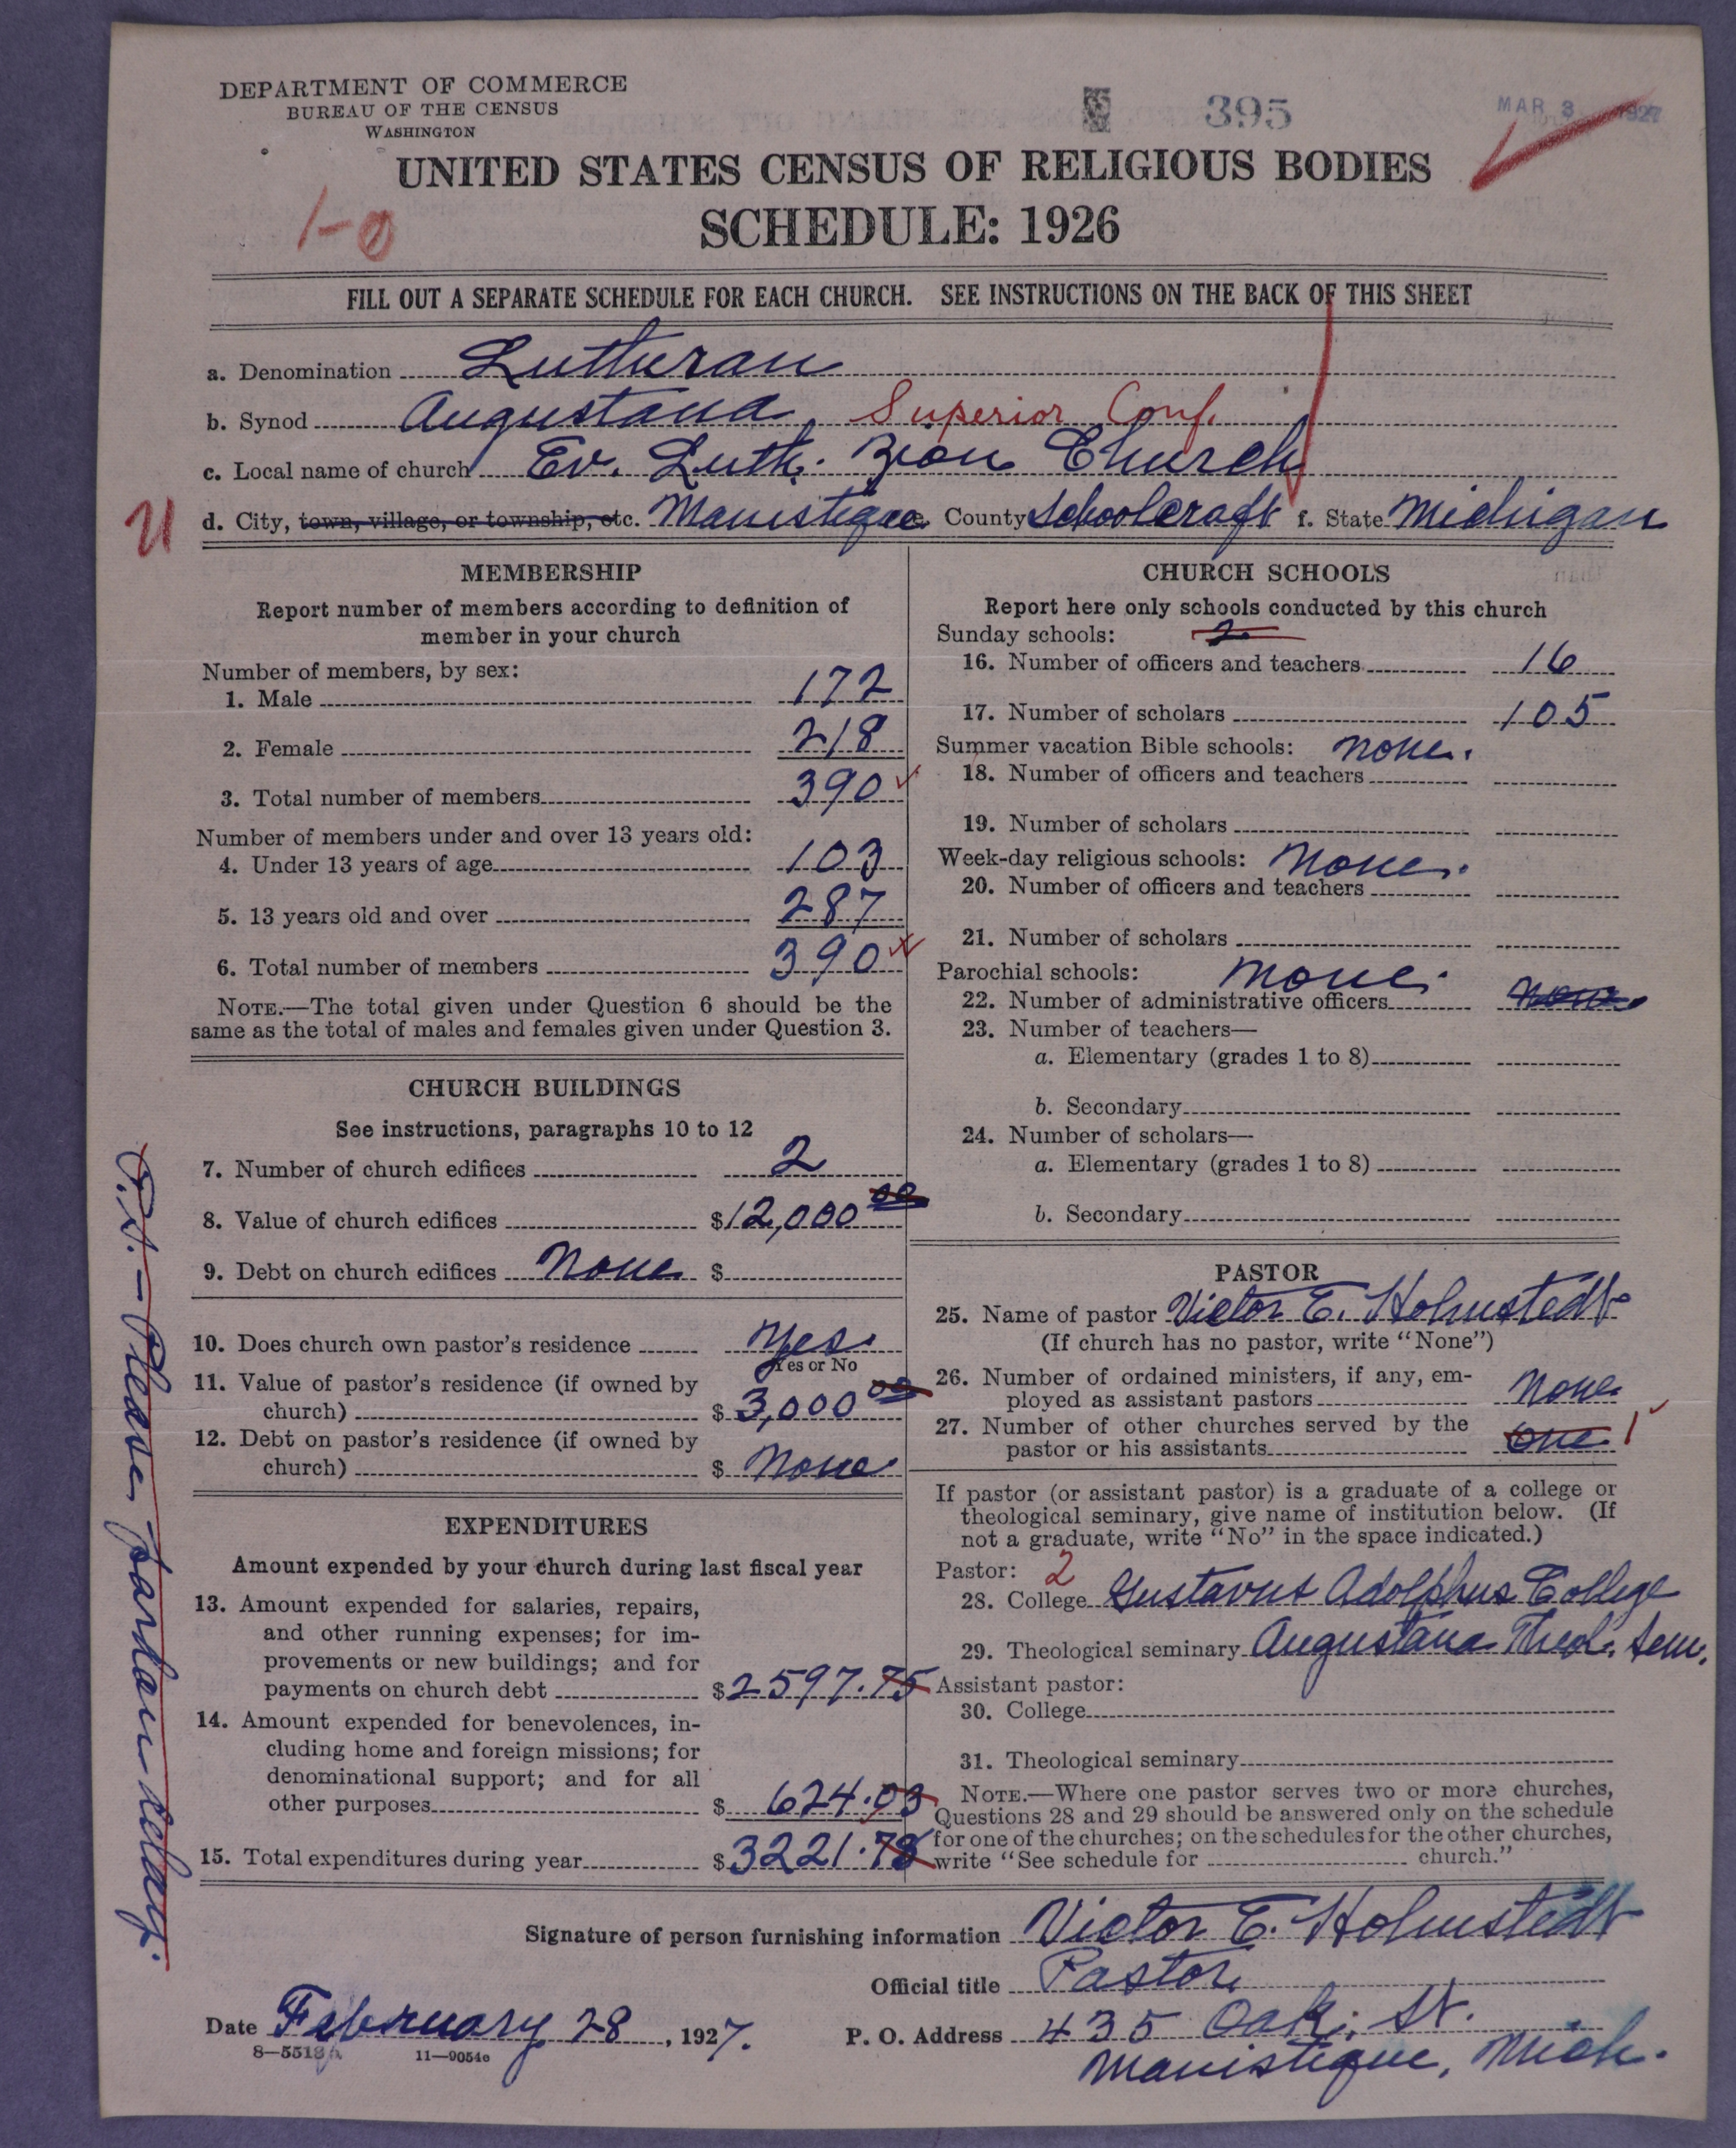 DEPARTMENT OF COMMERCE
BUREAU OF THE CENSUS
WASHINGTON
395
MAR 3 1927
UNITED STATES CENSUS OF RELIGIOUS BODIES
1-0
SCHEDULE: 1926
FILL OUT A SEPARATE SCHEDULE FOR EACH CHURCH. SEE INSTRUCTIONS ON THE BACK OF THIS SHEET
a. Denomination Lutheran
b. Synod Augustana, Superior Conf.
c. Local name of church Ev. Luth. Zion Church
U d. City, town, village, or township, etc. Manistique e. County Schoolcraft f. State Michigan
MEMBERSHIP
Report number of members according to definition of
member in your church
Number of members, by sex:
1. Male 172
2. Female 218
3. Total number of members 390
Number of members under and over 13 years old:
4. Under 13 years of age 103
5. 13 years old and over 287
6. Total number of members 390
NOTE.—The total given under Question 6 should be the
same as the total of males and females given under Question 3.
CHURCH BUILDINGS
See instructions, paragraphs 10 to 12
7. Number of church edifices 2
8. Value of church edifices $12,000 00
9. Debt on church edifices None $
10. Does church own pastor's residence Yes
Yes or No
11. Value of pastor's residence (if owned by
church) $ 3,000 00
12. Debt on pastor's residence (if owned by
church) $ None
EXPENDITURES
Amount expended by your church during last fiscal year
13. Amount expended for salaries, repairs,
and other running expenses; for im-
provements or new buildings; and for
payments on church debt $2597.75
14. Amount expended for benevolences, in-
cluding home and foreign missions; for
denominational support; and for all
other purposes $ 624.03
15. Total expenditures during year $3221.78
CHURCH SCHOOLS
Report here only schools conducted by this church
Sunday schools: 2
16. Number of officers and teachers 16
17. Number of scholars 105
Summer vacation Bible schools: None.
18. Number of officers and teachers
19. Number of scholars
Week-day religious schools: None.
20. Number of officers and teachers
21. Number of scholars
Parochial schools: None.
22. Number of administrative officers None
23. Number of teachers—
a. Elementary (grades 1 to 8)
b. Secondary
24. Number of scholars—
a. Elementary (grades 1 to 8)
b. Secondary
PASTOR
25. Name of pastor Victor E. Holmstedt
(If church has no pastor, write "None")
26. Number of ordained ministers, if any, em-
ployed as assistant pastors None
27. Number of other churches served by the
pastor or his assistants One 1
If pastor (or assistant pastor) is a graduate of a college or
theological seminary, give name of institution below. (If
not a graduate, write "No" in the space indicated.)
Pastor: 2
28. College Gustavus Adolphus College
29. Theological seminary Augustana Theol. Sem.
Assistant pastor:
30. College
31. Theological seminary
NOTE.—Where one pastor serves two or more churches,
Questions 28 and 29 should be answered only on the schedule
for one of the churches; on the schedules for the other churches,
write "See schedule for church."
Signature of person furnishing information Victor E. Holmstedt
Official title Pastor
Date February 28, 1927.
P. O. Address 435 Oak St.
Manistique, Mich.
8—5518
11—9054e
P.S. - Please pardon delay.